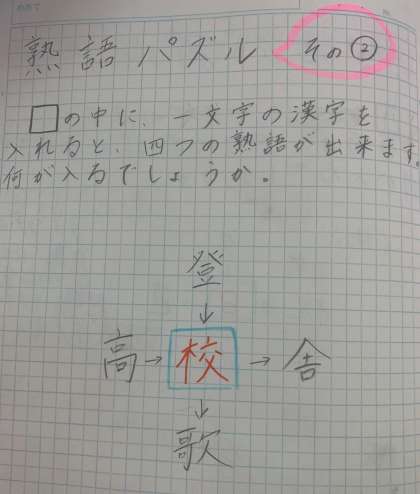 熟語パズル その②
□の中に、一文字の漢字を
入れると、四つの熟語が出来ます。
何が入るでしょうか。
登
↓
高→校→舎
↓
歌